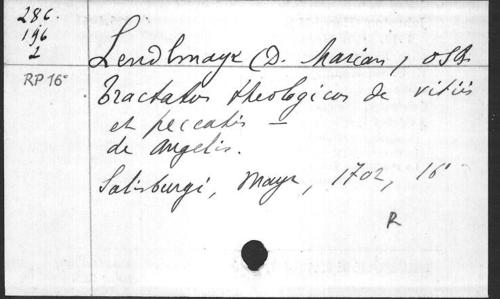 286.
196
2
RP 16°
Lendlmayr (D. Marian, OSB
Tractatus theologicos de vitiis
et peccatis —
de angelis.
Salisburgi, Mayr, 1702, 16°
R